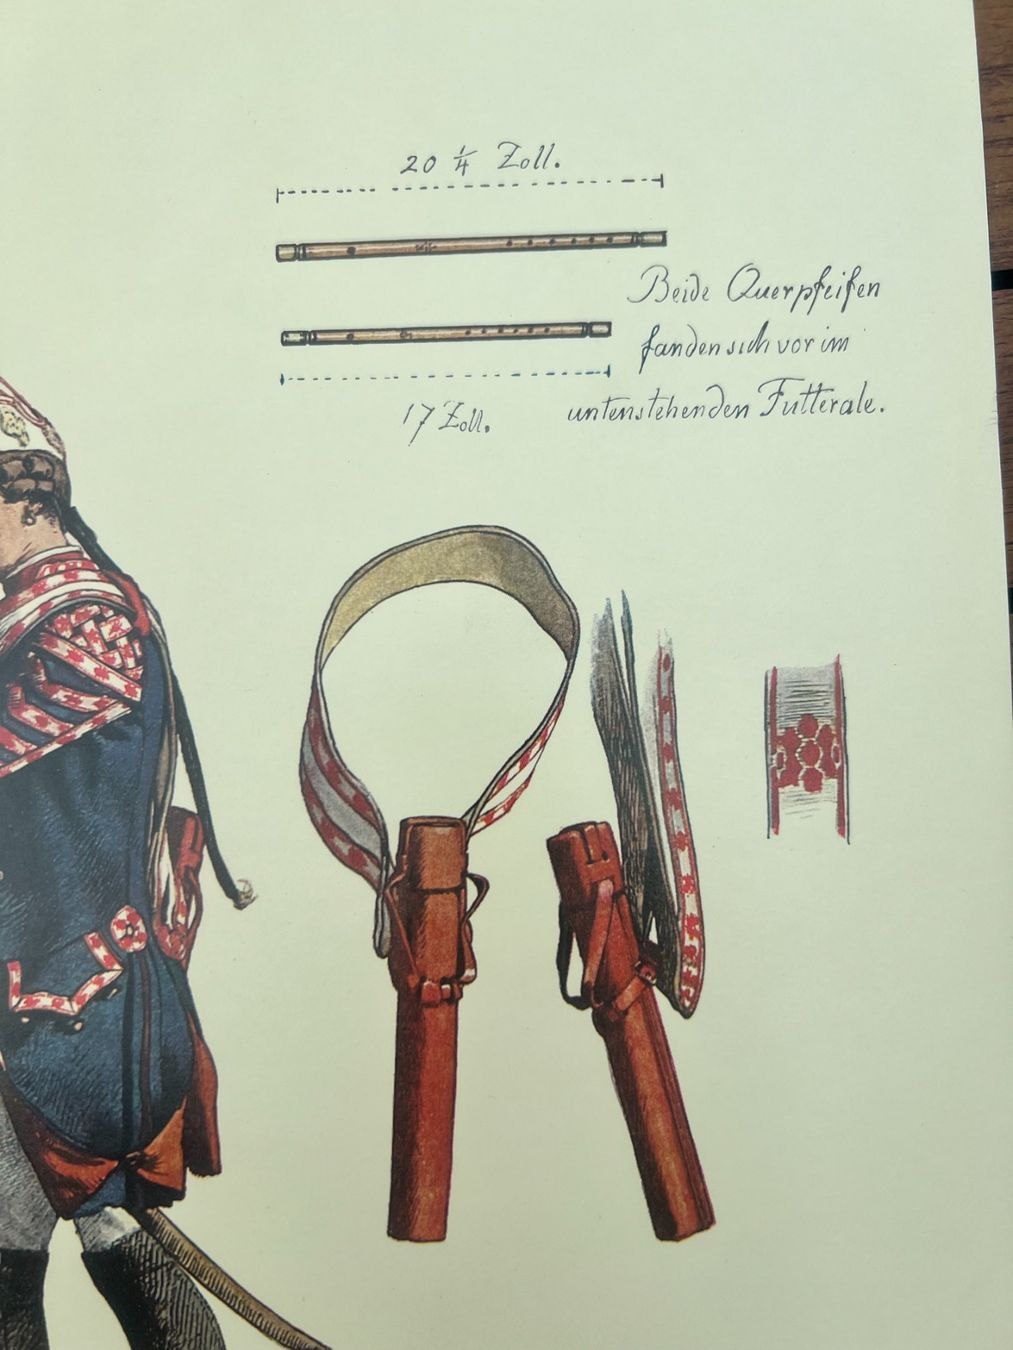 20 1/4 Zoll.
Beide Querpfeifen
fanden sich vor im
17 Zoll.
untenstehenden Futterale.